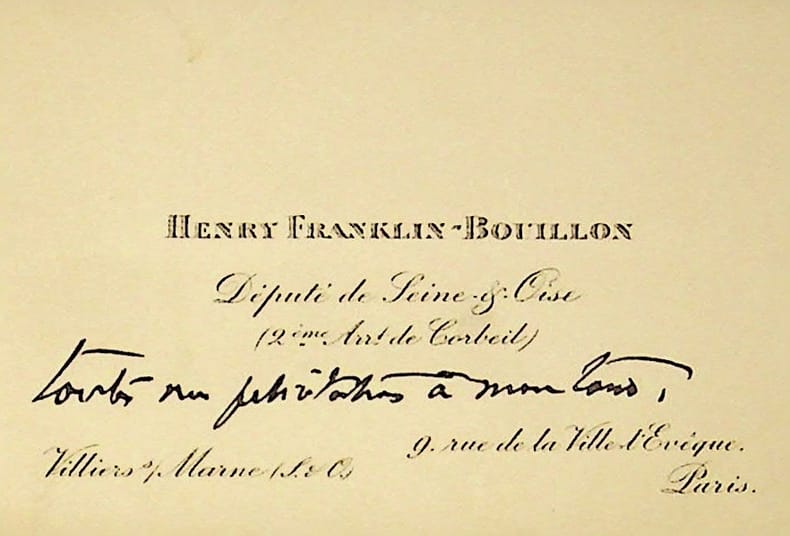 HENRY FRANKLIN-BOUILLON
Député de Seine-&-Oise
(2ème Arrt de Corbeil)
toutes mes félicitations à mon tour,
9. rue de la Ville-l'Evêque.
Villiers s/ Marne (S. & O)
Paris.